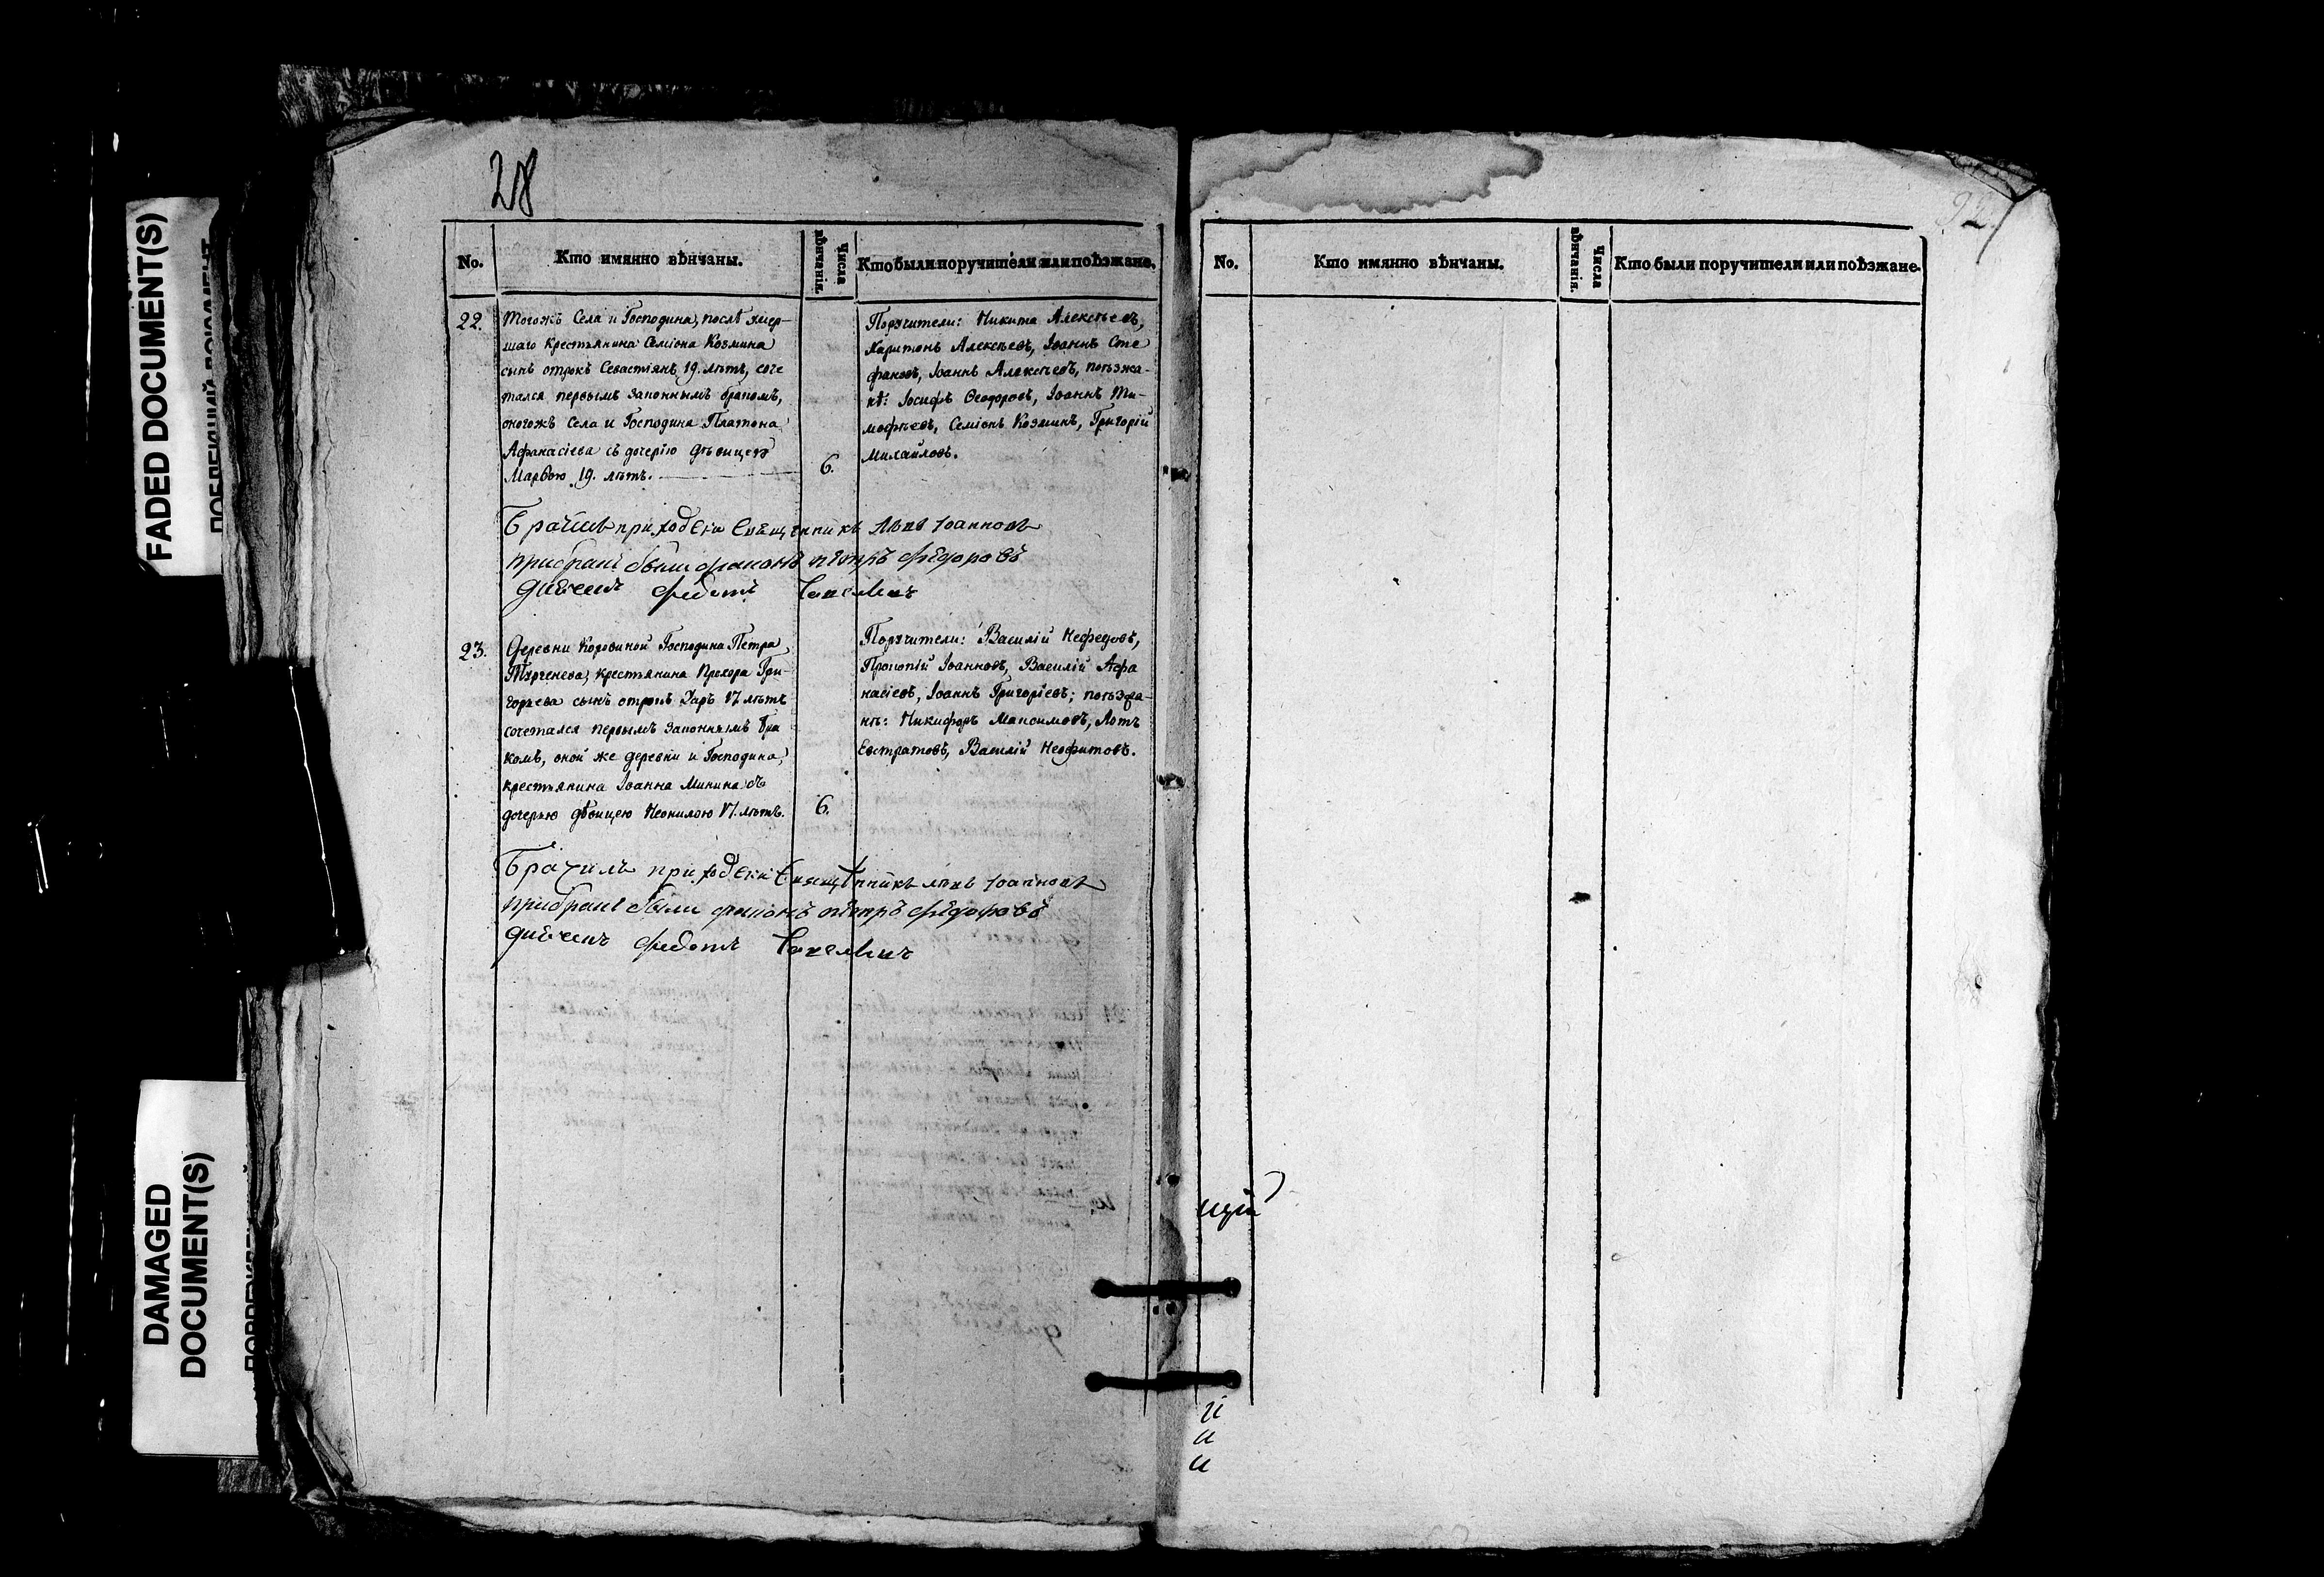 FADED DOCUMENT(S)
DAMAGED
DOCUMENT(S)
28
No.
Кто имянно вѣнчаны.
Числа
вѣнчанія.
Кто были поручители или поѣзжане.
22.
Тогожъ Села и Господина, послѣ умер-
шаго крестьянина Семіона Козмина
сынъ отрокъ Севастіянъ 19. лѣтъ, соче
тался первымъ законнымъ бракомъ,
оногожъ Села и Господина Платона
Афанасіева съ дочерію дѣвицею
Марѳою 19. лѣтъ.
6.
Поручители: Никита Алексѣевъ,
Харитонъ Алексѣевъ, Іоаннъ Сте
фановъ, Іоаннъ Алексѣевъ, поѣзжа-
нѣ: Іосифъ Ѳеодоровъ, Іоаннъ Ти-
мофѣевъ, Семіонъ Козминъ, Григорій
Михайловъ.
приходски Священникъ Іоанновъ
были диаконъ петръ фёдоровъ
23.
Деревни Коровиной Господина Петра
Тургенева, крестьянина Прохора Гри-
горьева сынъ отрокъ 17 лѣтъ
сочетался первымъ законнымъ бра
комъ, оной же деревни и Господина,
крестьянина Іоанна Минина съ
дочерью дѣвицею Неонилою 17. лѣтъ.
6.
Поручители: Василій Нефедовъ,
Прокопій Іоанновъ, Василій Афа
насіевъ, Іоаннъ Григоріевъ; поѣзжа-
нѣ: Никифоръ Максимовъ, Лотъ
Евстратовъ, Василій Неофитовъ.
приходски Священникъ Іоанновъ
были диаконъ петръ фёдоровъ
No.
Кто имянно вѣнчаны.
Числа
вѣнчанія.
Кто были поручители или поѣзжане.
щій
и
и
и